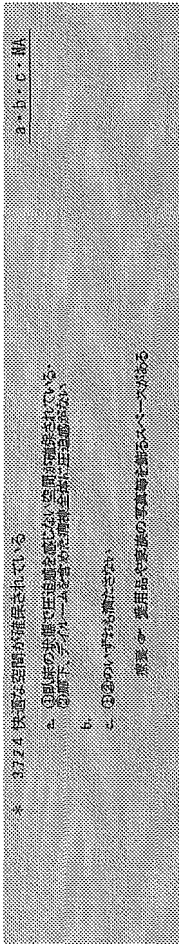 * 3.7.2.4 快適な空間が確保されている a・b・c・NA
a. ①臥床の状態で圧迫感を感じない空間が確保されている。
②廊下、デイルームを含めた病棟全体に圧迫感がない
b.
c. ①②のいずれも満たさない
愛用品や家族の写真等を飾るスペースがある